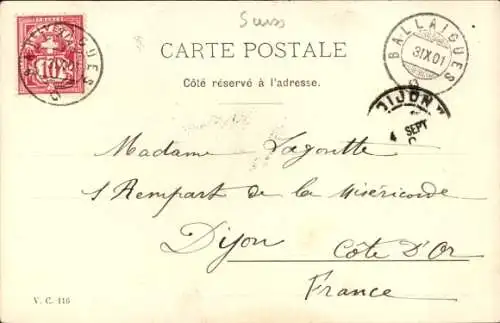 Suiss
BALLAIGUES
10
BALLAIGUES
3 IX 01
CARTE POSTALE
Côté réservé à l'adresse.
DIJON
4 SEPT
Madame Lagoutte
1 Rempart de la Miséricorde
Dijon Côte D'Or
France
V. C. 116